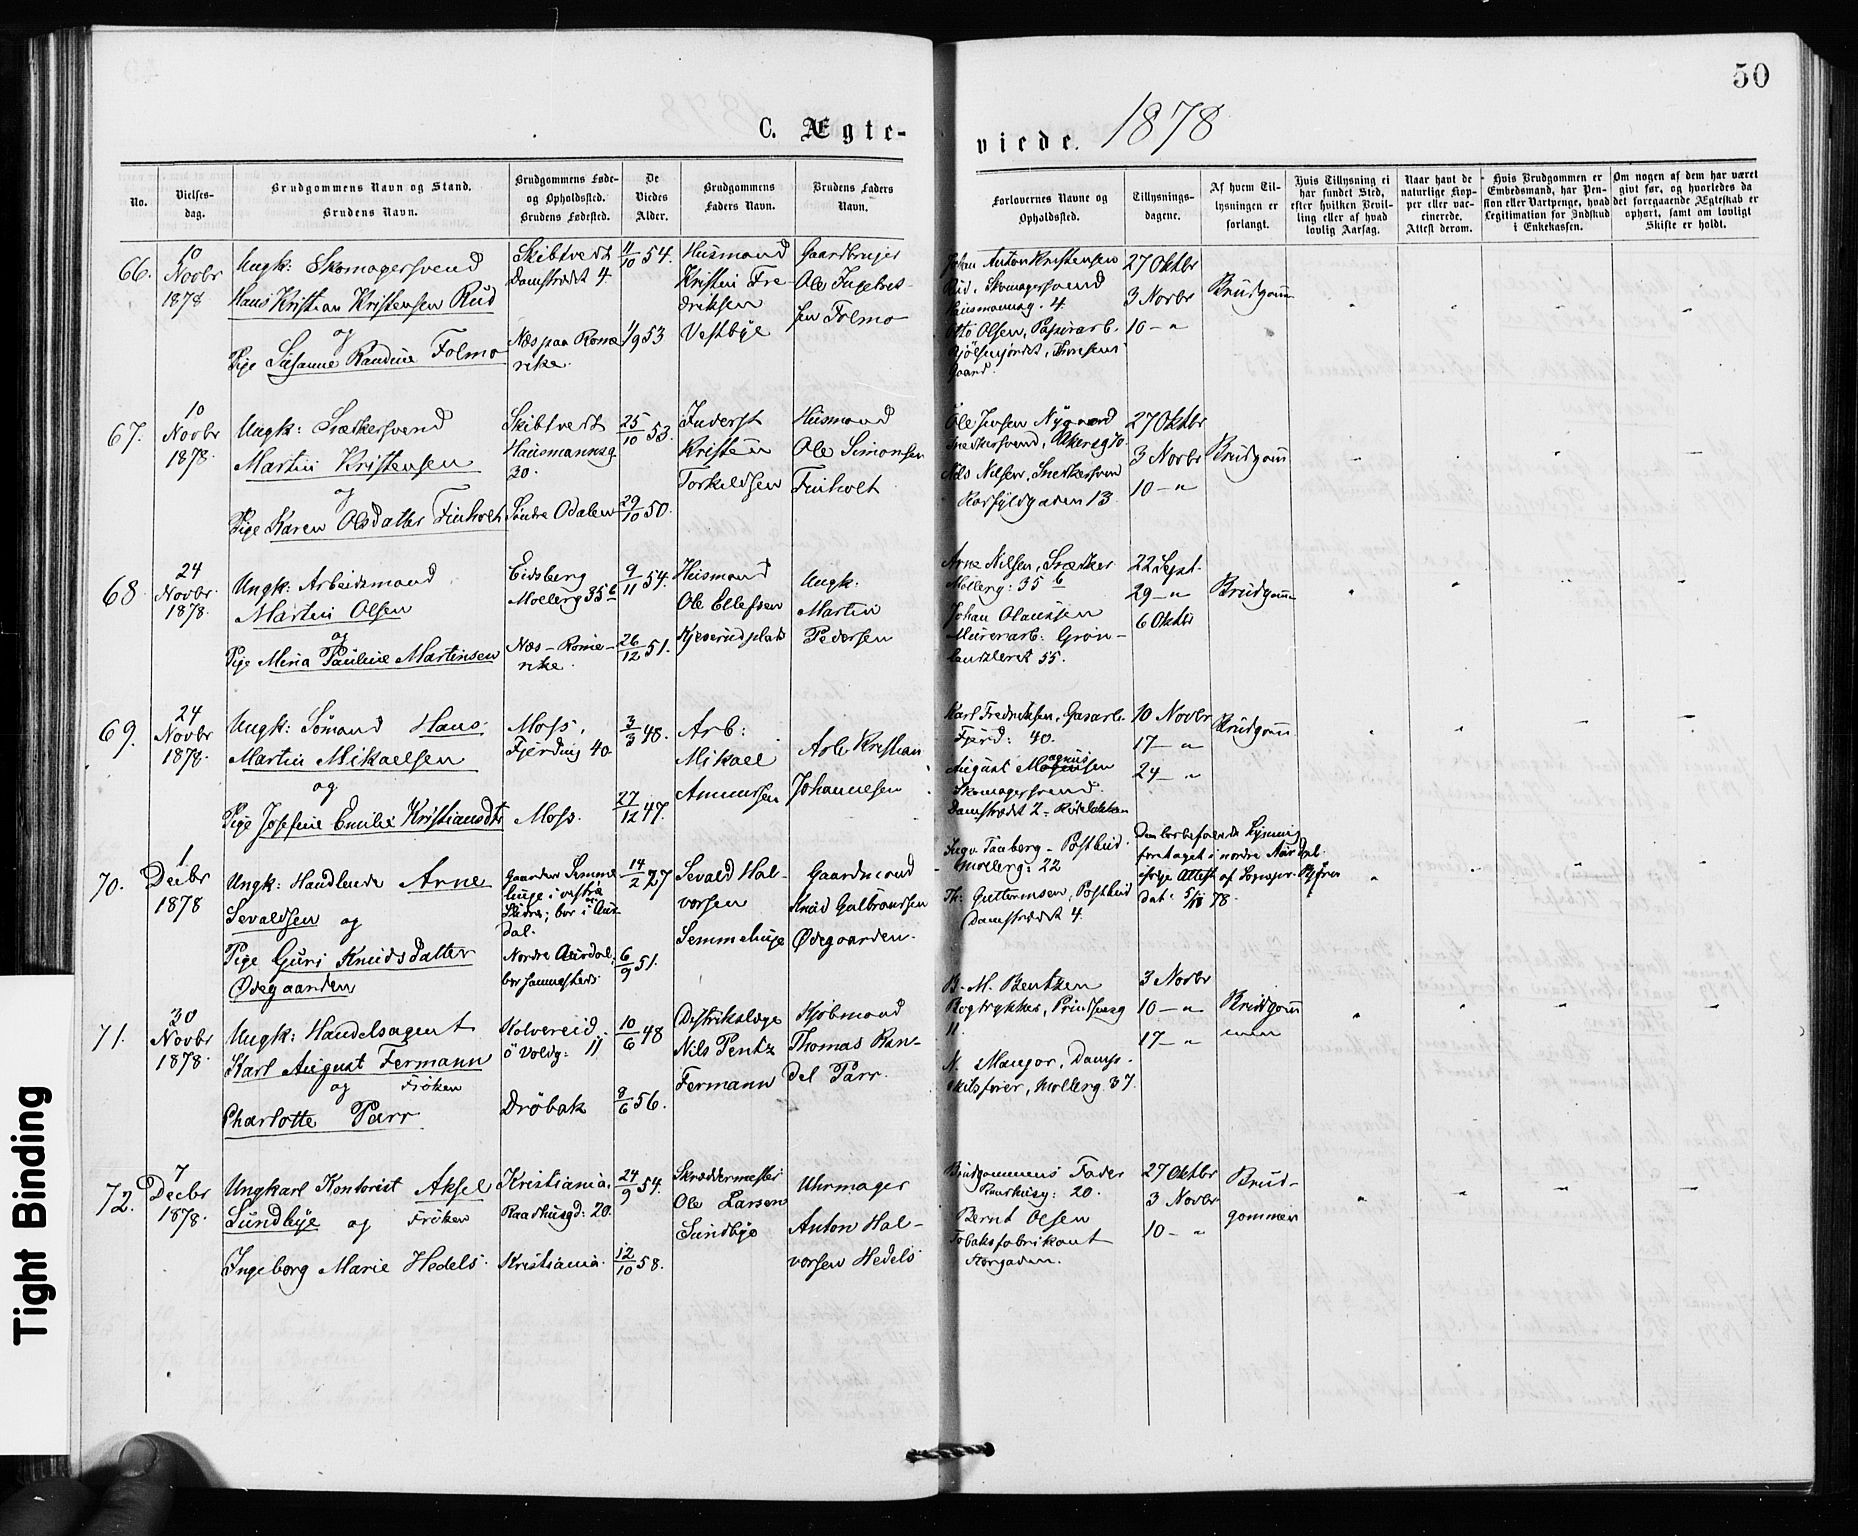 50
C. Ægte-
viede. 1878
No.
Vielses-
dag.
Brudgommens Navn og Stand.
Brudens Navn.
Brudgommens Føde-
og Opholdssted.
Brudens Fødested.
De
Viedes
Alder.
Brudgommens
Faders Navn.
Brudens Faders
Navn.
Forlovernes Navne og
Opholdssted.
Tillysnings-
dagene.
Af hvem Til-
lysningen er
forlangt.
Hvis Tillysning ei
har fundet Sted,
efter hvilken Bevil-
ling eller af hvad
lovlig Aarsag.
Naar havt de
naturlige Kop-
per eller vac-
cinerede.
Attest derom.
Hvis Brudgommen er
Embedsmand, har Pen-
sion eller Vartpenge, hvad
Legitimation for Indskud
i Enkekassen.
Om nogen af dem har været
gift før, og hvorledes da
det foregaaende Ægteskab er
ophørt, samt om lovligt
Skifte er holdt.
66.
10
Novbr
1878
Ungk: Skomagersvend
Hans Kristian Kristensen Rud
og
Pige Susanne Randine Folmo
Skibtvedt
Damstrædet 4.
Næs paa Rome
rike.
11/10 54.
1/9 53
Husmand
Kristen Fre
driksen
Vestbye
Gaardbruger
Ole Ingebret-
sen Folmo
Johan Anton Kristensen
Rud, Skomagersvend
Hausmannsg. 4.
Otto Olsen, Papirarb.
Bjølsenjordet, Thoresens
Gaard.
27 Oktbr
3 Novbr
10 – "
Brudgom
67.
10
Novbr
1878.
Ungk: Snedkersvend
Martin Kristensen
og
Pige Karen Olsdatter Finholt
Skibtvedt
Hausmannsg
30.
Søndre Odalen
25/10 53.
29/10 50.
Inderst
Kristen
Torkildsen
Husmand
Ole Simonsen
Finholt
Ole Jensen Nygaard
Snedkersvend, Akersg 70
Nils Nilsen, Snedkersvend
Korsfyldgaden 13.
27 Oktbr
3 Novbr
10 – "
Brudgom
68
24
Novbr.
1878.
Ungk: Arbeidsmand
Martin Olsen
og
Pige Mina Pauline Martinsen
Eidsberg
Mollerg 35 6
Næs – Rome –
rike.
9/11 54.
26/12 51.
Husmand
Ole Ellefsen
Kjeserudplads
Ungk.
Martin
Pedersen
Arne Nilsen, Snedker
Møllerg: 35 6
Johan Olaussen
Murerarb: Grøn –
landsleret 55.
22 Sept.
29 – "
6 Oktbr
Brudgom
69.
24
Novbr
1878.
Ungk: Sømand Hans
Martin Mikaelsen
og
Pige Josefine Emilie Kristiansdtr
Moss,
Fjerding 40
Moss.
3/3 48.
27/12 47.
Arb:
Mikael
Amundsen
Arb. Kristian
Johannesen
Karl Fredriksen, Gasarb.
Fjerd: 40.
August Magnussen
Skomagersvend.
Damstrædet 2 –
10 Novbr
17 – "
24 – "
Brudgom
70.
1
Decbr
1878
Ungk: Handlende Arne
Sevaldsen og
Pige Guri Knudsdatter
Ødegaarden
Gaarden Semme
huje i vestre
Slidre; bor i Aur-
dal.
Nordre Aurdal,
bor sammesteds.
14/2 27
6/9 51.
Sevald Hal-
vorsen
Semmehuje
Gaardmand
Knud Gulbrandsen
Ødegaarden.
Ingv. Tanberg – Postbud.
Mollerg: 22
Th: Guttormsen, Postbud
Damstrædet 4.
Den lovbefalede Lysning
foretaget i nordre Aurdal
ifølge Attest af Sognepr.
dat. 5/11 78.
71.
30
Novbr
1878.
Ungk: Handelsagent
Karl August Fermann
og Frøken
Charlotte Parr
Kolvereid.
ö Voldg: 11
Drøbak
10/6 48
8/6 56.
Distriktslæge
Nils Pentz
Fermann
Kjøbmand
Thomas Ran-
del Parr.
B. M. Bentzen
Bogtrykker, Prindsensg
11.
N. Mangor, Damps-
skibsfører, Mollerg. 37.
3 Novbr
10 – "
17 – "
Brudgom
men
72.
7
Decbr
1878.
Ungkarl Kontorist Aksel
Sundbye og Frøken
Ingeborg Marie Hedels.
Kristiania.
Raadhusgd: 20.
Kristiania.
24/9 54.
12/10 58.
Skræddermester
Ole Larsen
Sundbye
Uhrmager
Anton Hal-
vorsen Hedels
Brudgommens Fader
Raadhusg: 20.
Bernt Olsen
Tobaksfabrikant
Storgaden.
27 Oktbr
3 Novbr
10 – "
Brud-
gommen
Tight Binding